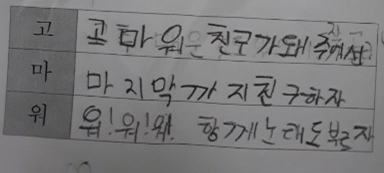 고 고마워운 친구가 돼 주에삼
마 마지막까지 친구하자
워 워!워!워! 함께 노래도 부르자